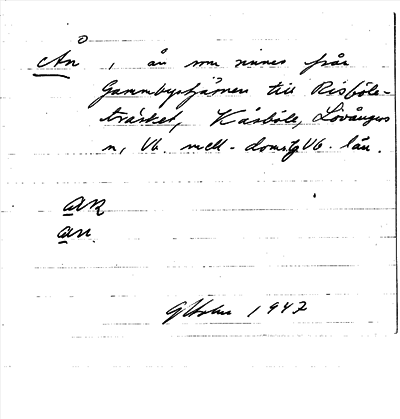 Ån, ån som rinner från
Gammbystjärnen till Risböle-
träsket, Kåsböle, Lövångers
sn, Vb. mell. doms. Vb. län.
an
an.
G Holm 1947